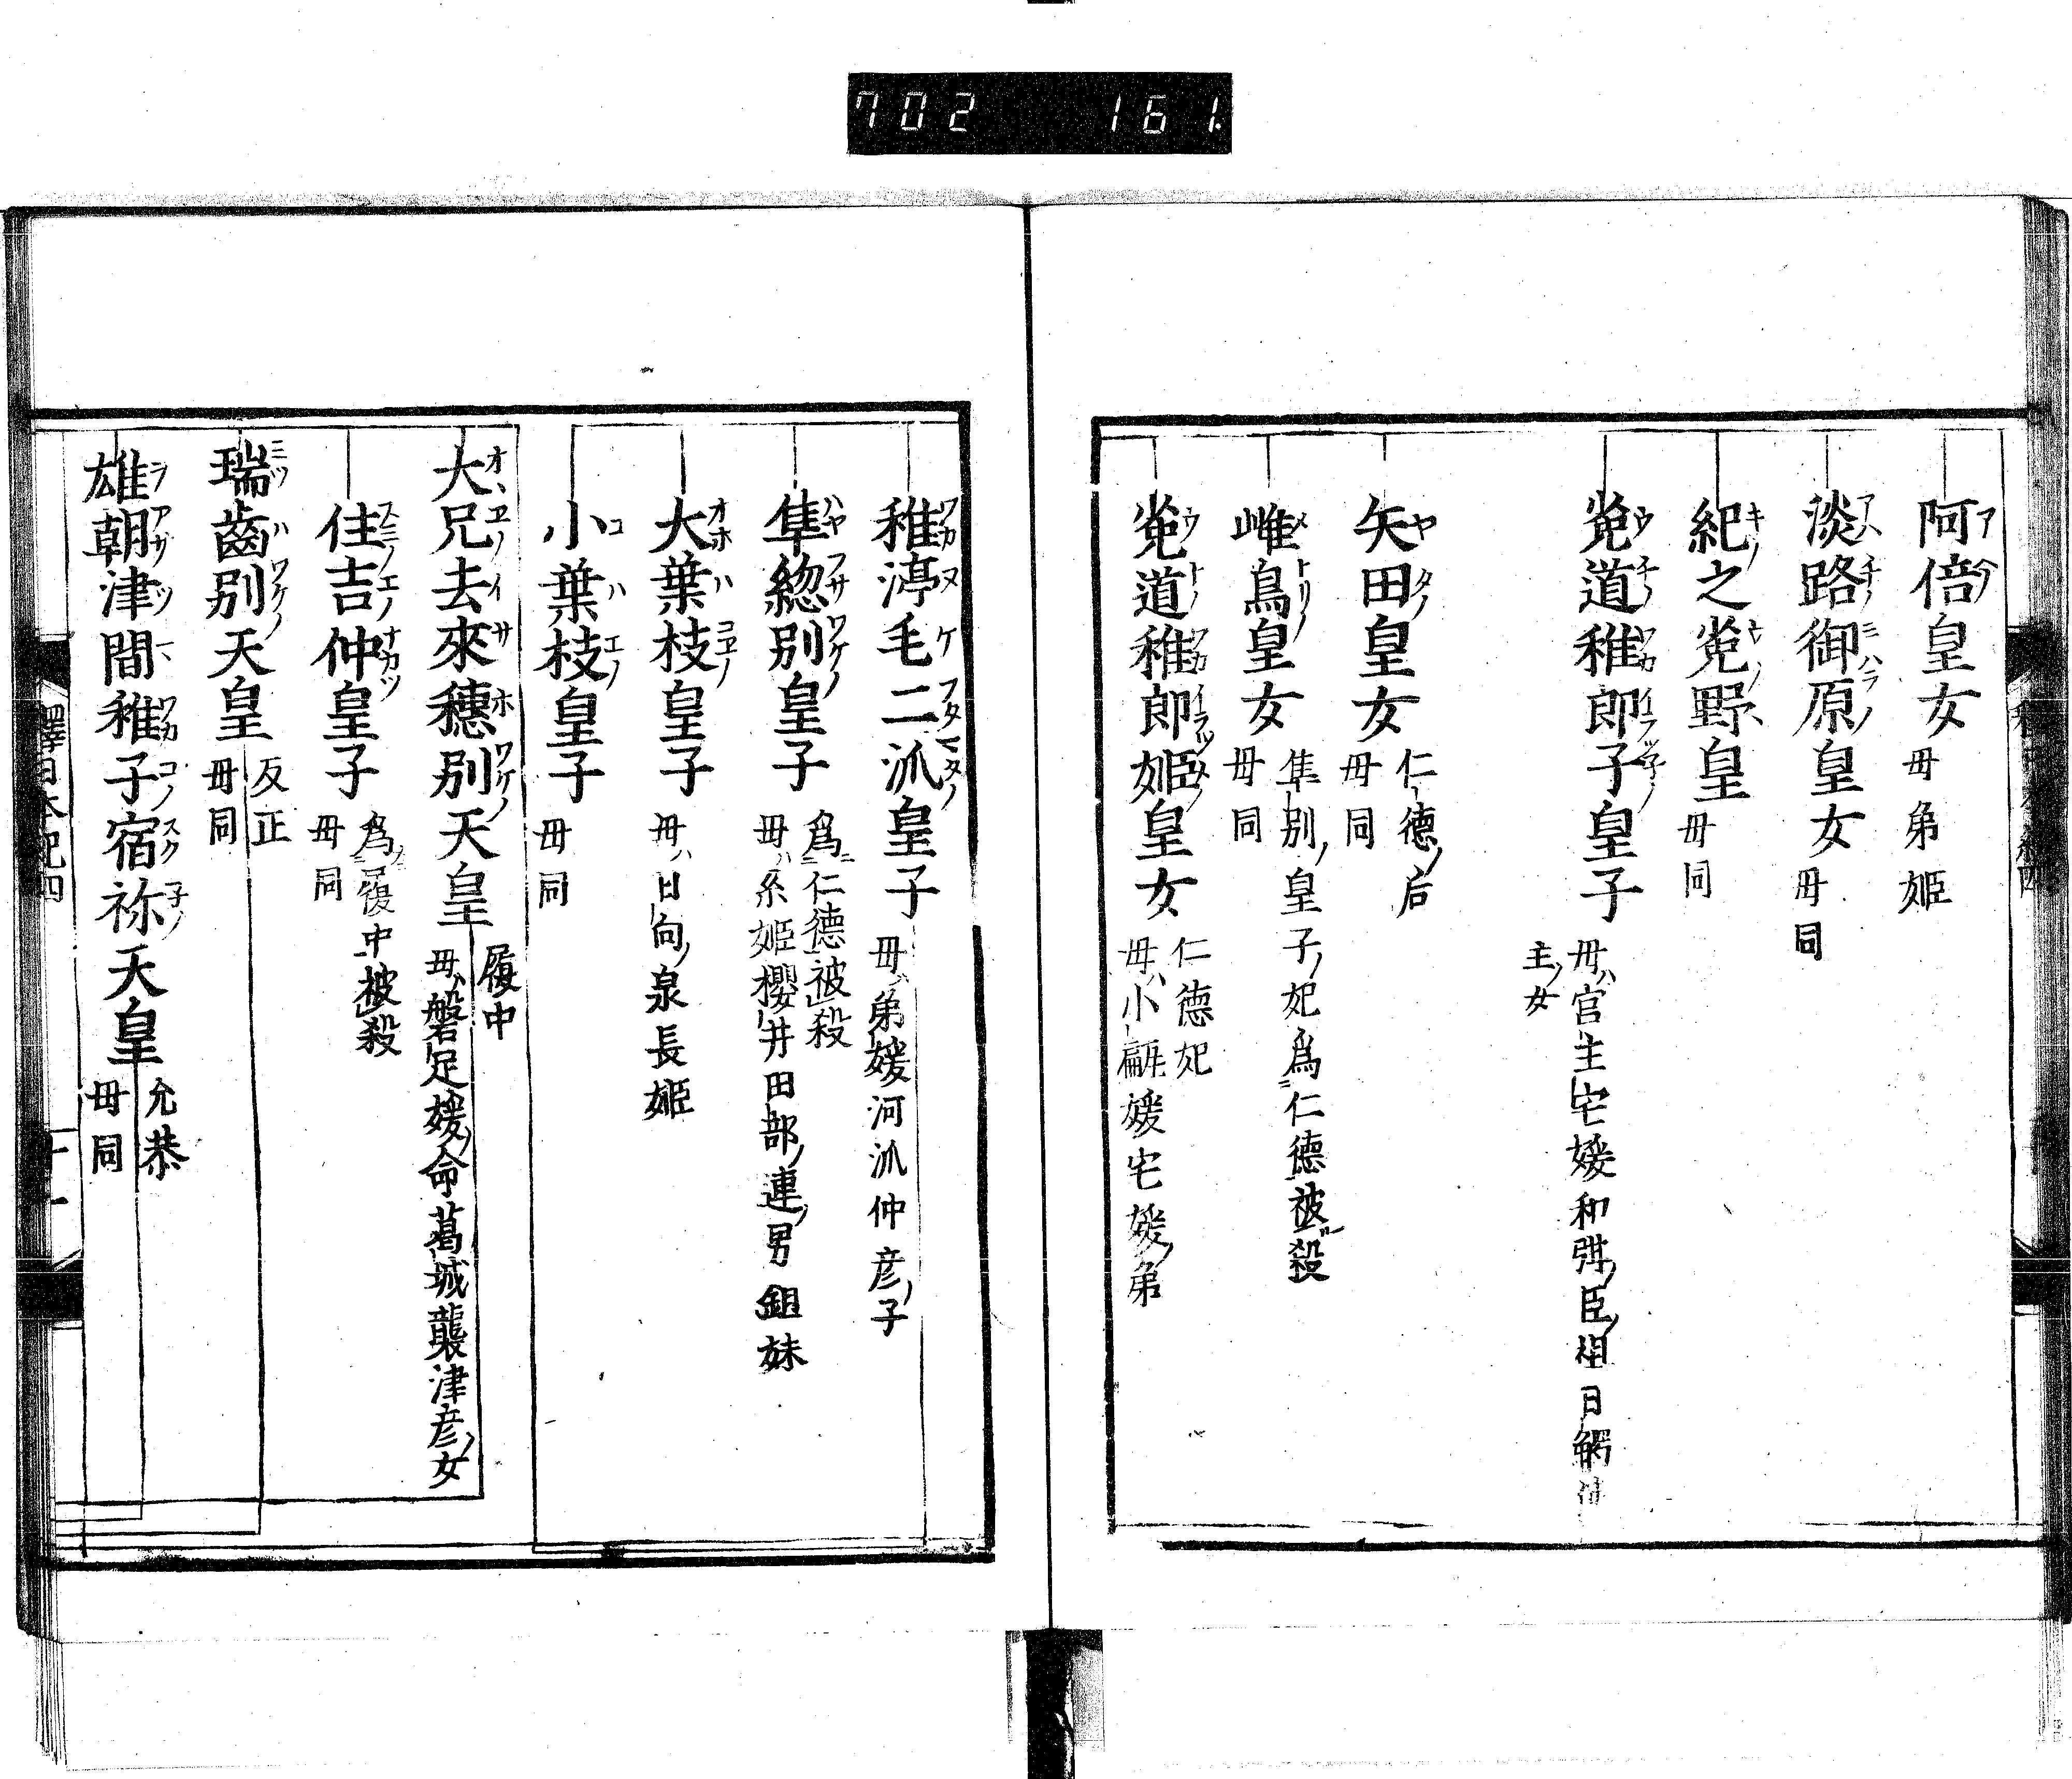 702 161.
阿倍皇女 母弟姫
淡路御原皇女 母同
紀之菟野皇 母同
菟道稚郎子皇子 母ハ宮主宅媛和珥ノ臣ノ祖日觸
主ノ女
矢田皇女 仁徳ノ后
母同
雌鳥皇女 隼別ノ皇子ノ妃為仁徳被殺
母同
菟道稚郎姫皇女 仁徳妃
母ハ小甂媛宅媛ノ弟
稚渟毛二派皇子 母ハ弟媛河派仲彦ノ子
隼総別皇子 為仁徳被殺
母ハ糸姫櫻井田部ノ連ノ男鉏妹
大葉枝皇子 母ハ日向ノ泉長姫
小葉枝皇子 母同
大兄去來穗別天皇 履中
母ハ磐足媛ノ命葛城襲津彦ノ女
住吉仲皇子 為履中被殺
母同
瑞齒別天皇 反正
母同
雄朝津間稚子宿祢天皇 允恭
母同
釋日本紀四
十一